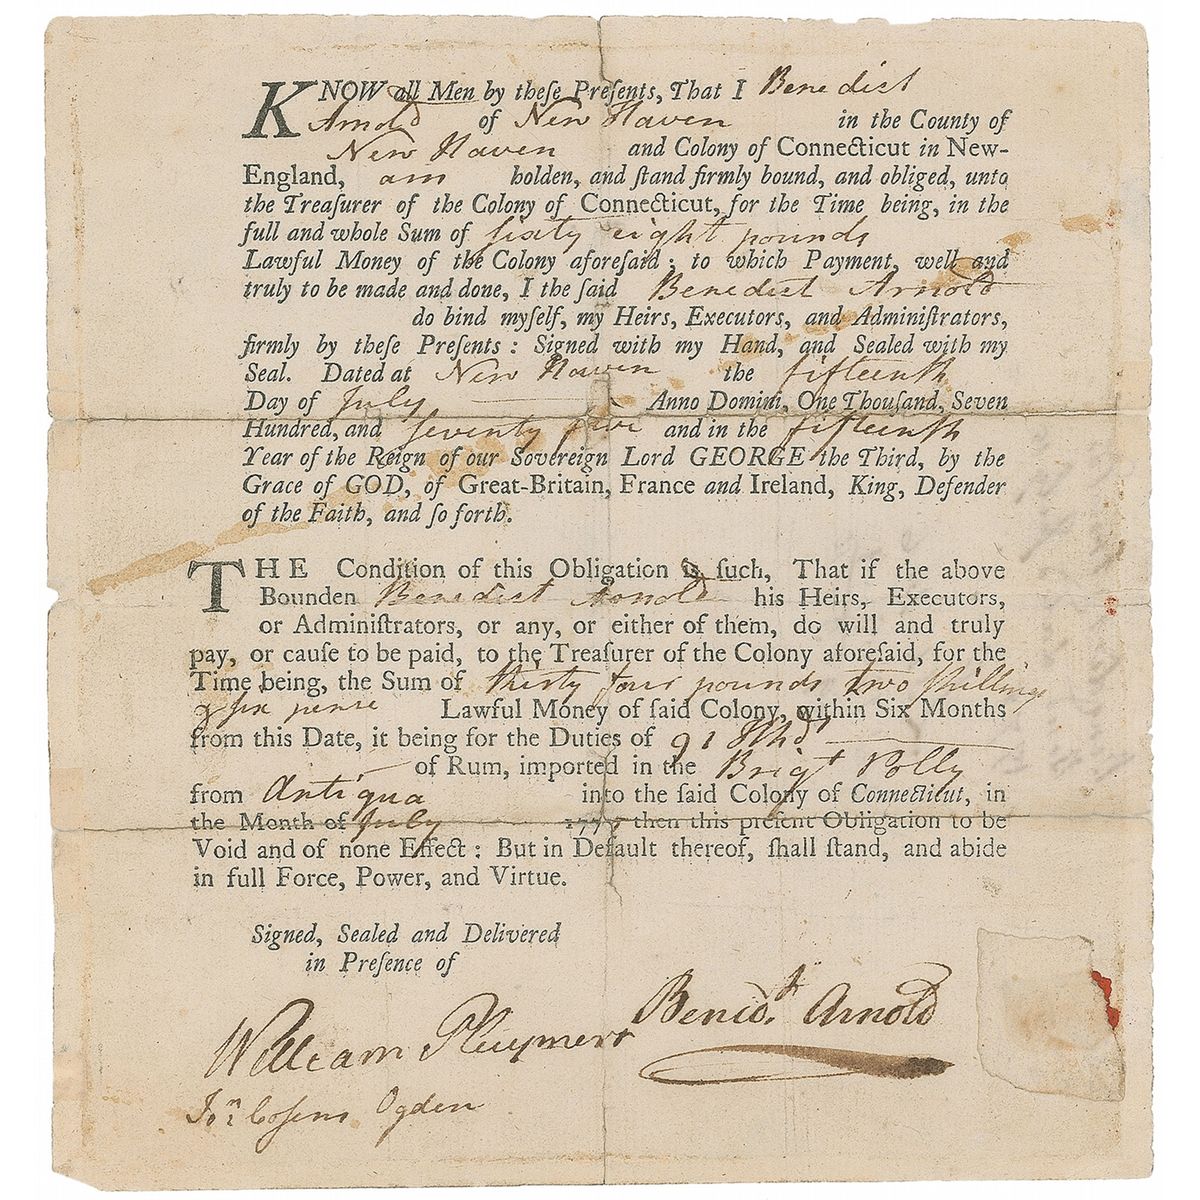 KNOW all Men by theſe Preſents, That I Benedict
Arnold of New Haven in the County of
New Haven and Colony of Connecticut in New-
England, am holden, and ſtand firmly bound, and obliged, unto
the Treaſurer of the Colony of Connecticut, for the Time being, in the
full and whole Sum of ſixty eight pounds
Lawful Money of the Colony aforeſaid: to which Payment, well and
truly to be made and done, I the ſaid Benedict Arnold
do bind myſelf, my Heirs, Executors, and Adminiſtrators,
firmly by theſe Preſents: Signed with my Hand, and Sealed with my
Seal. Dated at New Haven the fifteenth
Day of July Anno Domini, One Thouſand, Seven
Hundred, and ſeventy five and in the fifteenth
Year of the Reign of our Sovereign Lord GEORGE the Third, by the
Grace of GOD, of Great-Britain, France and Ireland, King, Defender
of the Faith, and ſo forth.
THE Condition of this Obligation is ſuch, That if the above
Bounden Benedict Arnold his Heirs, Executors,
or Adminiſtrators, or any, or either of them, do will and truly
pay, or cauſe to be paid, to the Treaſurer of the Colony aforeſaid, for the
Time being, the Sum of thirty four pounds two ſhillings
& ſix pence Lawful Money of ſaid Colony, within Six Months
from this Date, it being for the Duties of 91 Hhds
of Rum, imported in the Brigt Polly
from Antigua into the ſaid Colony of Connecticut, in
the Month of July 1775 then this preſent Obligation to be
Void and of none Effect: But in Default thereof, ſhall ſtand, and abide
in full Force, Power, and Virtue.
Signed, Sealed and Delivered
in Preſence of
Benedt. Arnold
William
Jon: Cosens Ogden